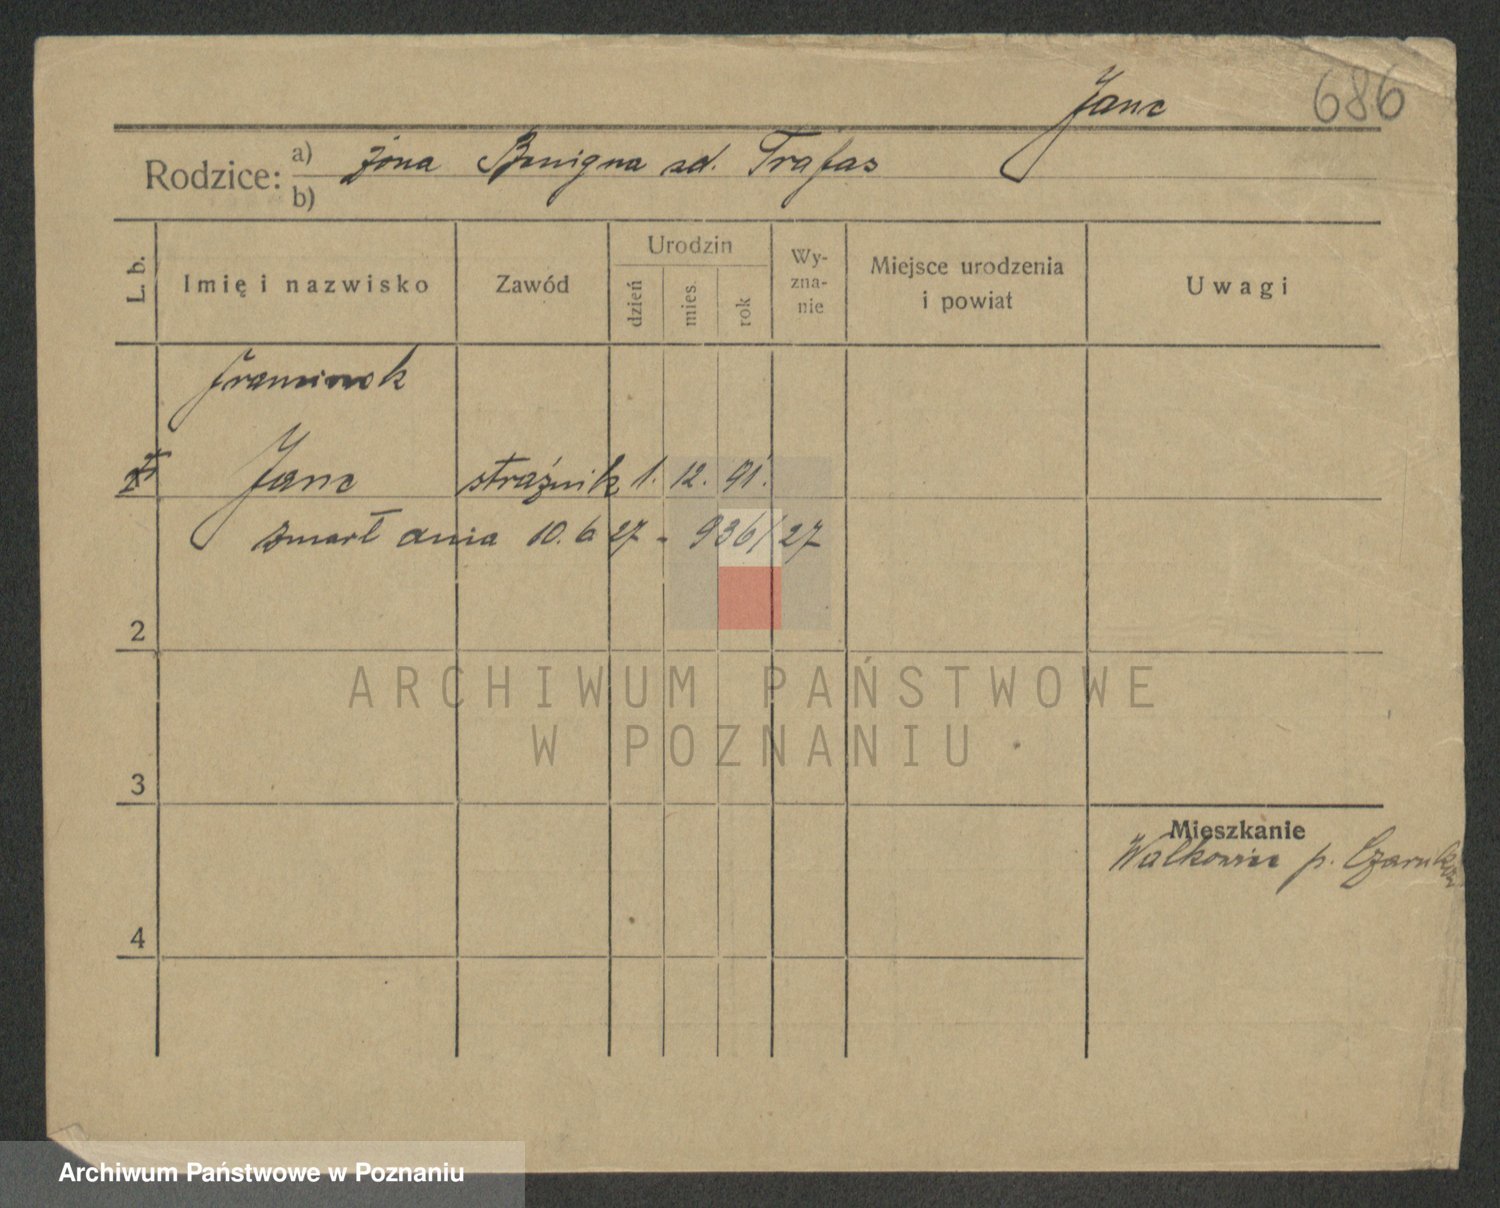 Janc 686
Rodzice: a) żona Benigna zd. Trafas
b)
L. b. Imię i nazwisko Zawód Urodzin dzień mies. rok Wy-zna-nie Miejsce urodzenia i powiat Uwagi
Franciszek
Janc strażnik 1. 12. 91.
zmarł dnia 10. 6 27 - 936/27
2
ARCHIWUM PAŃSTWOWE
W POZNANIU
3
Mieszkanie
Walkowice p. Czarnków
4
Archiwum Państwowe w Poznaniu